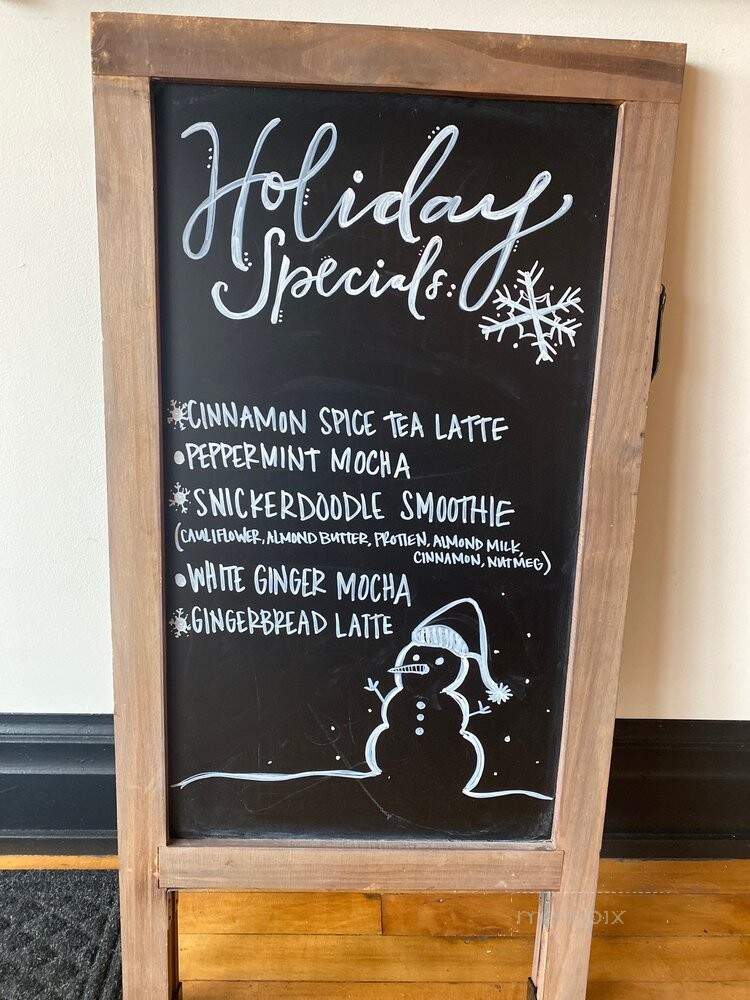 Holiday
Specials:
CINNAMON SPICE TEA LATTE
PEPPERMINT MOCHA
SNICKERDOODLE SMOOTHIE
(CAULIFLOWER, ALMOND BUTTER, PROTIEN, ALMOND MILK,
CINNAMON, NUTMEG)
WHITE GINGER MOCHA
GINGERBREAD LATTE